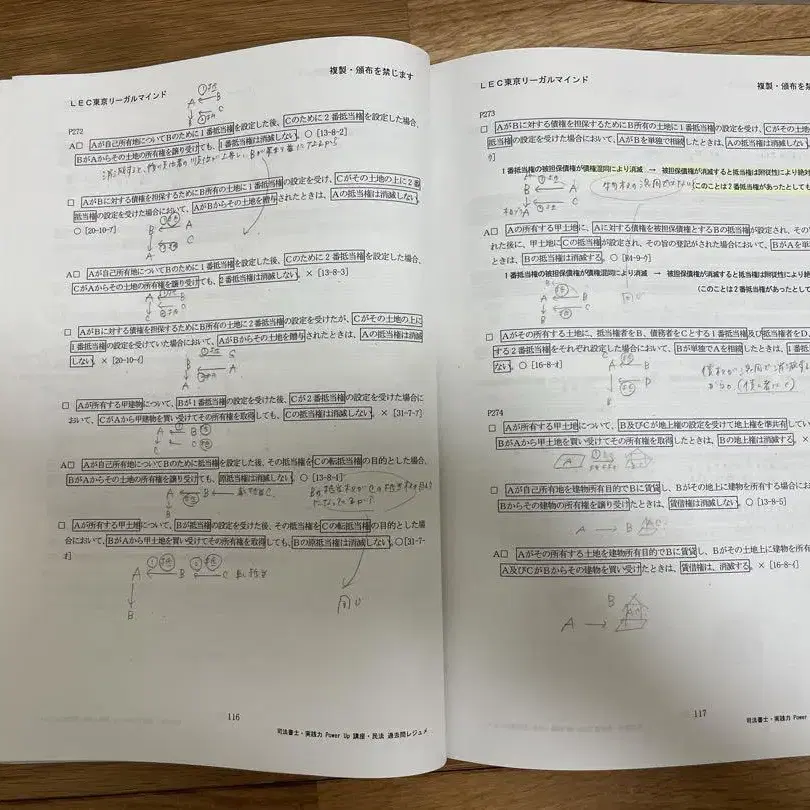 LEC東京リーガルマインド
複製・頒布を禁じます
P272
A□ Aが自己所有地についてBのために1番抵当権を設定した後、Cのために2番抵当権を設定した場合、
BがAからその土地の所有権を譲り受けても、1番抵当権は消滅しない。○[13-8-2]
□ AがBに対する債権を担保するためにB所有の土地に1番抵当権の設定を受け、Cがその土地の上に2番
抵当権の設定を受けた場合において、AがBからその土地を贈与されたときは、Aの抵当権は消滅しない。
○[20-10-7]
A□ Aが自己所有地についてBのために1番抵当権を設定した後、Cのために2番抵当権を設定した場合、
CがAからその土地の所有権を譲り受けても、2番抵当権は消滅しない。×[13-8-3]
□ AがBに対する債権を担保するためにB所有の土地に2番抵当権の設定を受けたが、Cがその土地の上に
1番抵当権の設定を受けていた場合において、AがBからその土地を贈与されたときは、Aの抵当権は消滅
しない。×[20-10-イ]
□ Aが所有する甲建物について、Bが1番抵当権の設定を受けた後、Cが2番抵当権の設定を受けた場合に
おいて、CがAから甲建物を買い受けてその所有権を取得しても、Cの抵当権は消滅しない。×[31-7-7]
A□ Aが自己所有地についてBのために抵当権を設定した後、その抵当権をCの転抵当権の目的とした場合、
BがAからその土地の所有権を譲り受けても、原抵当権は消滅しない。○[13-8-4]
□ Aが所有する甲土地について、Bが抵当権の設定を受けた後、その抵当権をCの転抵当権の目的とした場
合において、BがAから甲土地を買い受けてその所有権を取得しても、Bの原抵当権は消滅しない。○[31-7-
同じ
116
司法書士・実践力 Power Up 講座・民法 過去問レジュメ
LEC東京リーガルマインド
複製・頒布を禁
P273
□ AがBに対する債権を担保するためにB所有の土地に1番抵当権の設定を受け、Cがその土
抵当権の設定を受けた場合において、AがBを単独で相続したときは、Aの抵当権は消滅し
1番抵当権の被担保債権が債権混同により消滅 → 被担保債権が消滅すると抵当権は附従性により絶対
(このことは2番抵当権があったとしても
A□ Aの所有する甲土地に、Aに対する債権を被担保債権とするBの抵当権が設定され、その
れた後に、甲土地にCの抵当権が設定され、その旨の登記がされた場合において、BがAを単
ときは、Bの抵当権は消滅する。○[B4-9-ｳ]
1番抵当権の被担保債権が債権混同により消滅 → 被担保債権が消滅すると抵当権は附従性により絶
(このことは2番抵当権があったとして
同じ
□ Aがその所有する土地に、抵当権者をB、債務者をCとする1番抵当権及び抵当権者をD、
する2番抵当権をそれぞれ設定した場合において、Bが単独でAを相続したときは、1番抵
ない。○[16-8-イ]
P274
□ Aが所有する甲土地について、B及びCが地上権の設定を受けて地上権を準共有してい
BがAから甲土地を買い受けてその所有権を取得したときは、Bの地上権は消滅する。×
□ Aが自己所有地を建物所有目的でBに賃貸し、Bがその地上に建物を所有する場合にお
Bからその建物の所有権を譲り受けたときは、賃借権は消滅しない。○[13-8-5]
A□ Aがその所有する土地を建物所有目的でBに賃貸し、Bがその土地上に建物を所有
A及びCがBからその建物を買い受けたときは、賃借権は、消滅する。×[16-8-
117
司法書士・実践力 Pow